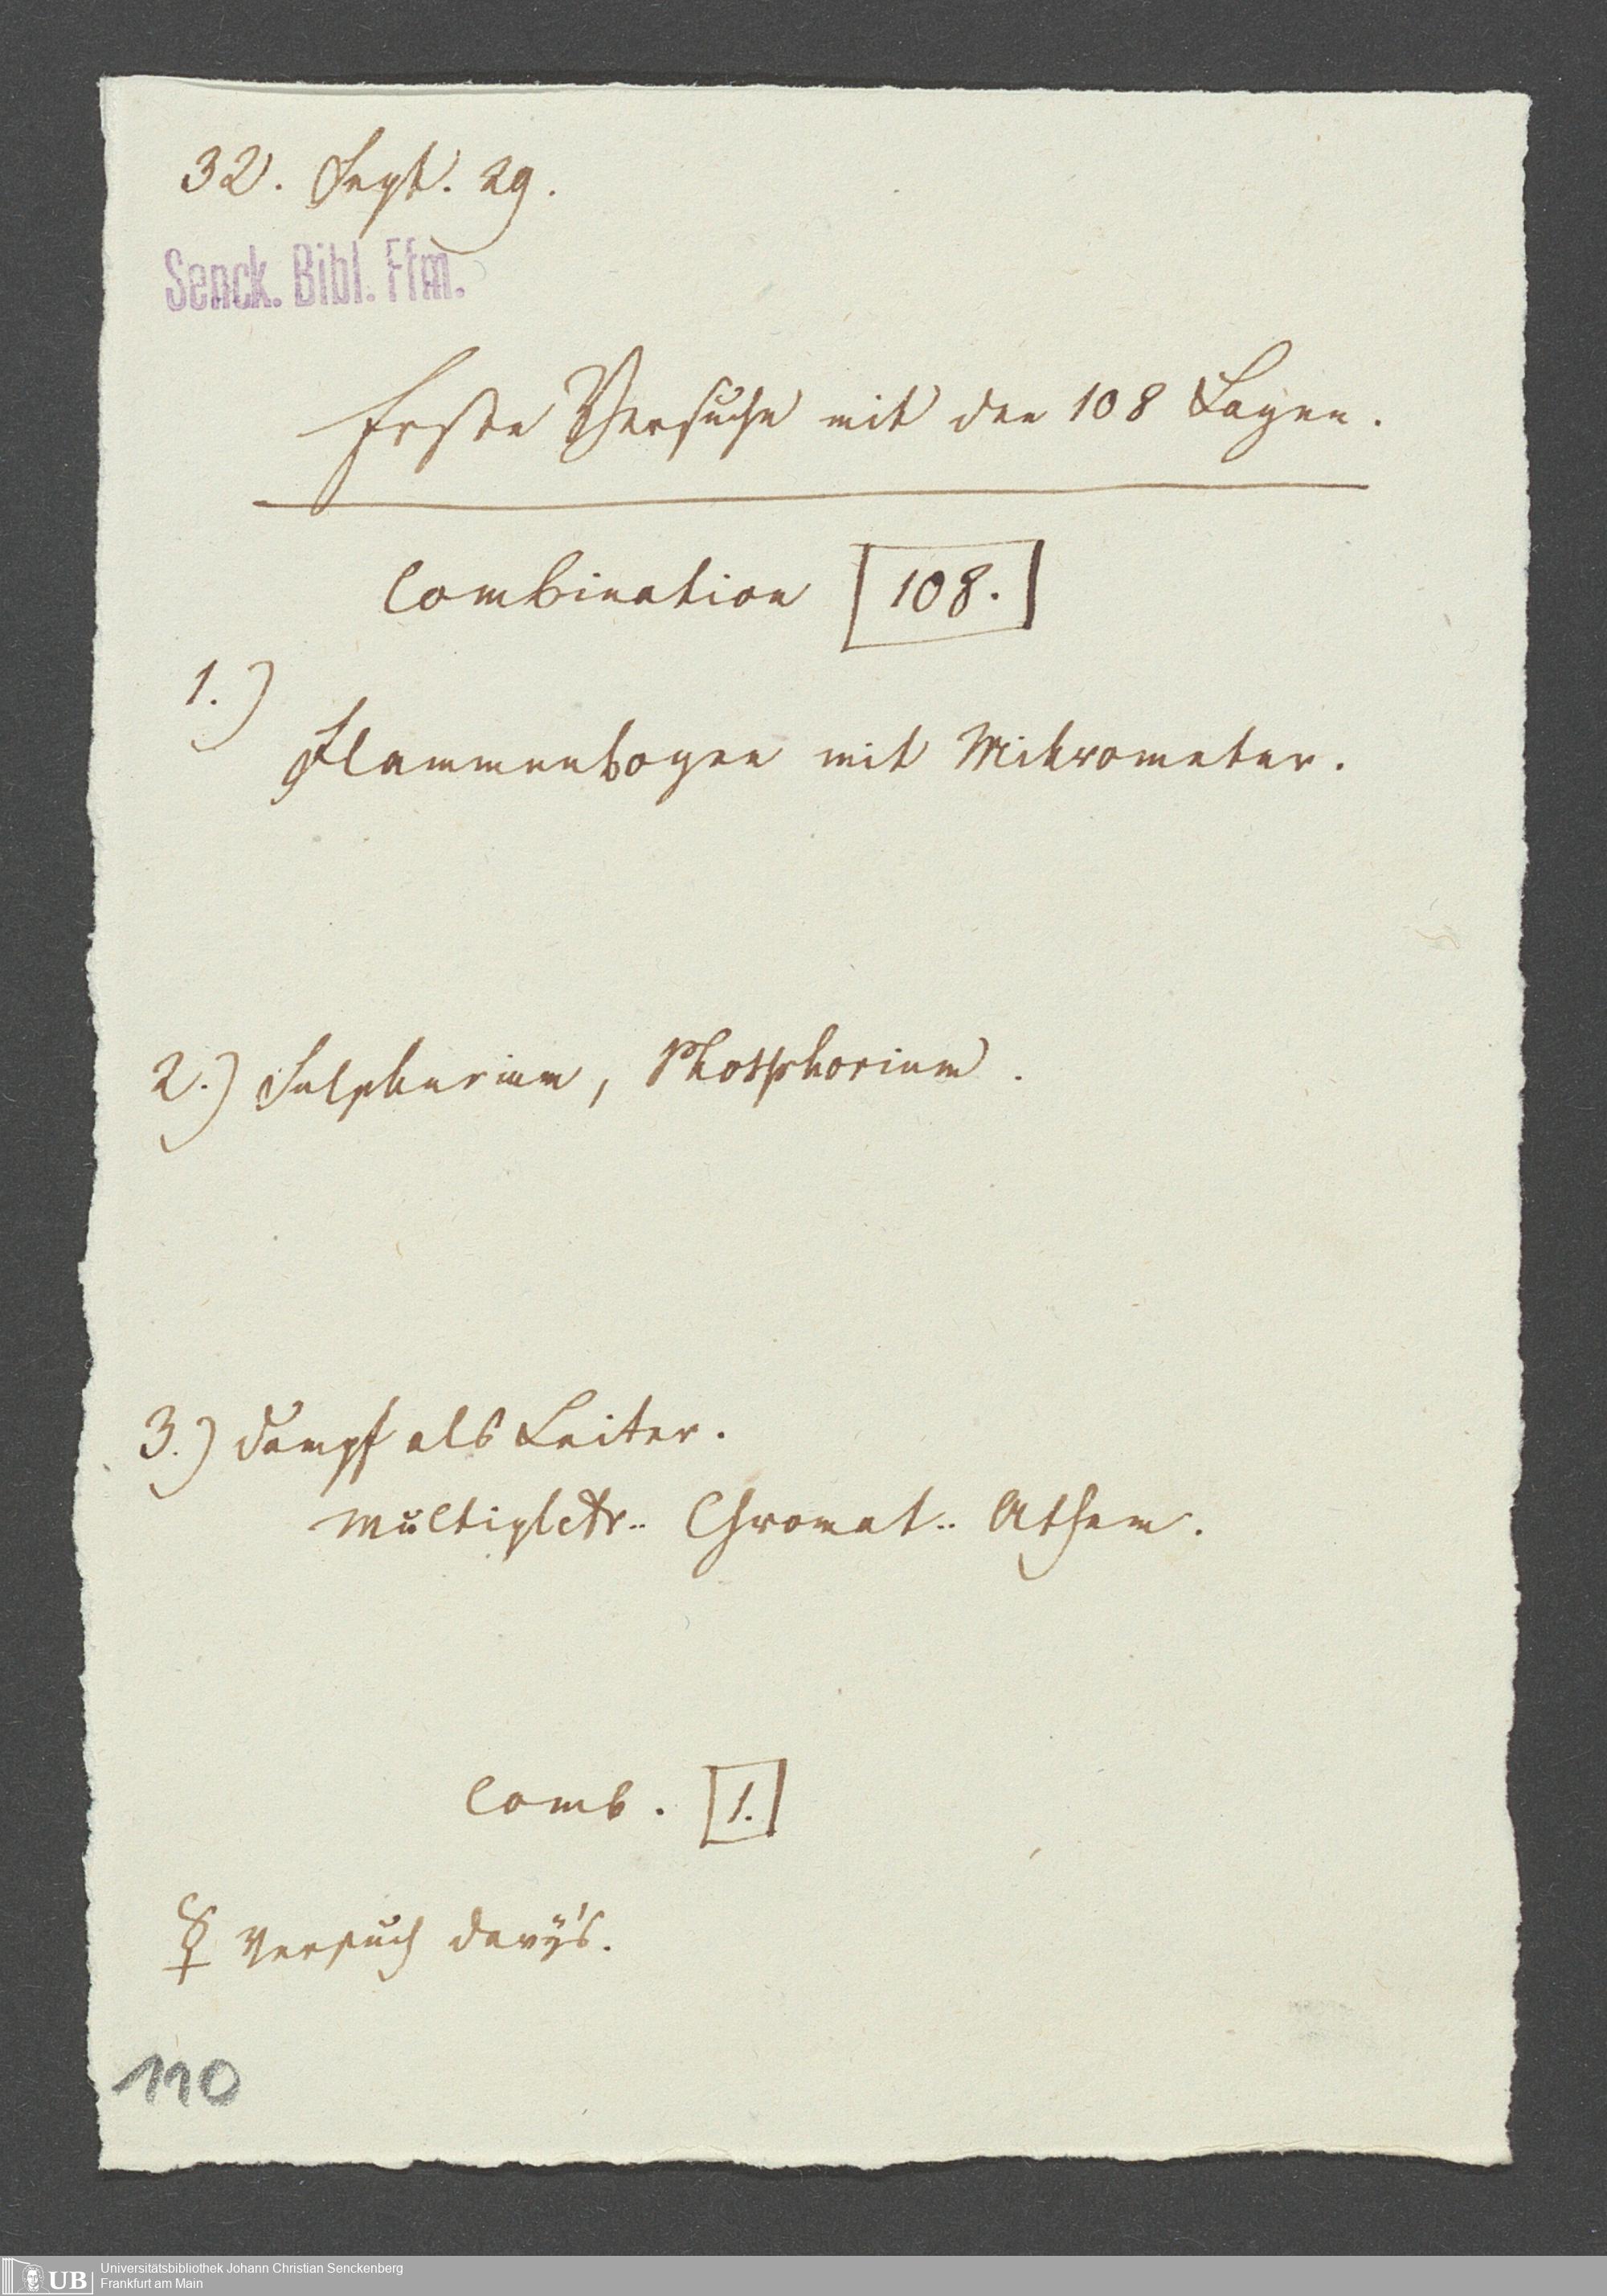 32. Sept. 29.
Senck. Bibl. Ffm.
Erste Versuche mit den 108 Lagen.
Combination 108.
1.)
Flammenbogen mit Mikrometer.
2.) Sulphurium, Phosphorium.
3.) Dampf als Leiter.
Multipletr.. Chromat.. Athem.
Comb. 1.
Versuch Davÿ's.
110
UB
Universitätsbibliothek Johann Christian Senckenberg
Frankfurt am Main